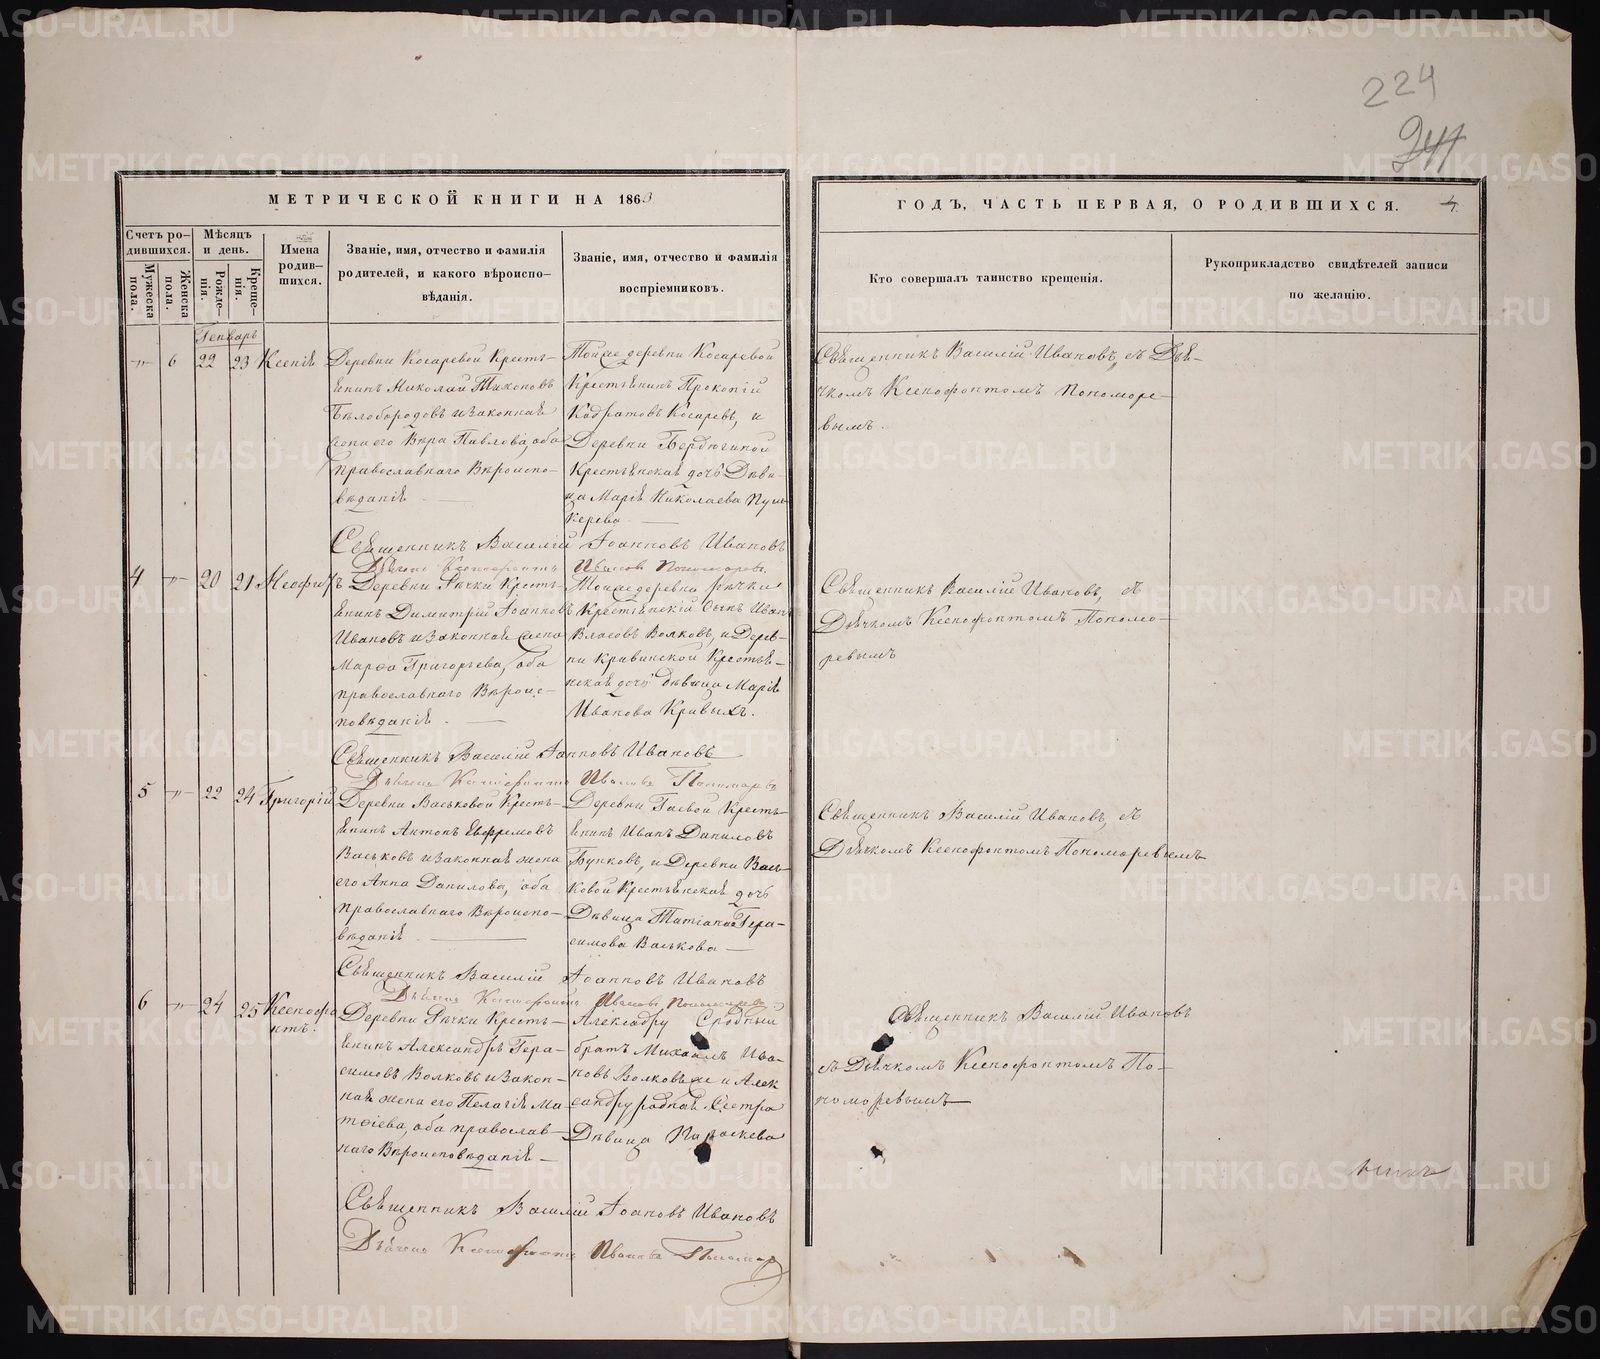 224
241
МЕТРИЧЕСКОЙ КНИГИ НА 1863
ГОДЪ, ЧАСТЬ ПЕРВАЯ, О РОДИВШИХСЯ.
4.
Счетъ ро-
дившихся.
Мужеска
пола.
Женска
пола.
Мѣсяцъ
и день.
Рожде-
нія.
Креще-
нія.
Имена
родив-
шихся.
Званіе, имя, отчество и фамилія
родителей, и какого вѣроиспо-
вѣданія.
Званіе, имя, отчество и фамилія
воспріемниковъ.
Кто совершалъ таинство крещенія.
Рукоприкладство свидѣтелей записи
по желанію.
Генварь
6 22 23 Ксенія
Деревни Косаревой Кресть-
янинъ Николай Тихоновъ
Бѣлобородовъ и законная
жена его Вѣра Павлова, оба
православнаго Вѣроиспо-
вѣданія.
Тойже деревни Косаревой
Крестьянинъ Прокопій
Кодратовъ Косаревъ, и
Деревни Бердюгиной
Крестьянская дочь Дѣви-
ца Марія Николаева
Священникъ Василій Ивановъ, съ Дья-
чкомъ Ксенофонтомъ Пономоре-
вымъ.
Священникъ Василій Іоанновъ Ивановъ
Дьячекъ Ксенофонтъ Ивановъ Пономаревъ
4 20 21 Неофитъ
Деревни Рѣчки Кресть-
янинъ Димитрій Іоанновъ
Ивановъ и законная жена
Марѳа Григорьева, оба
православнаго Вѣроис-
повѣданія.
Тойже деревни Рѣчки
Крестьянскій сынъ Иванъ
Власовъ Волковъ, и Дерев-
ни Кривинской Крестья-
нская дочь Дѣвица Марія
Иванова Кривыхъ.
Священникъ Василій Ивановъ, съ
Дьячкомъ Ксенофонтомъ Пономо-
ревымъ
Священникъ Василій Іанновъ Ивановъ
Дьячекъ Ксенофонтъ Ивановъ Пономаревъ
5 22 24 Григорій
Деревни Васьковой Кресть-
янинъ Антонъ Евфремовъ
Васьковъ и законная жена
его Анна Данилова, оба
православнаго Вѣроиспо-
вѣданія
Деревни Гаевой Кресть-
янинъ Иванъ Даниловъ
Бунковъ, и Деревни Вась-
ковой Крестьянская дочь
Дѣвица Татіана Гера-
симова Васькова
Священникъ Василій Ивановъ, съ
Дьячкомъ Ксенофонтомъ Пономоревымъ
Священникъ Василій Іоанновъ Ивановъ
Дьячекъ Ксенофонтъ Ивановъ Пономаревъ
6 24 25 Ксенофо-
нтъ.
Деревни Рѣчки Кресть-
янинъ Александръ Гера-
симовъ Волковъ и закон-
ная жена его Пелагія Ма-
тѳіева, оба православ-
наго Вѣроисповѣданія
Александру Сродный
братъ Михаилъ Ива-
новъ Волковъ же и Алек-
сандру родная Сестра
Дѣвица Параскева
Священникъ Василій Ивановъ
съ Дьячкомъ Ксенофонтомъ По-
номоревымъ
Священникъ Василій Іоановъ Ивановъ
Дьячекъ Ксенофонтъ Ивановъ Пономар
METRIKI.GASO-URAL.RU